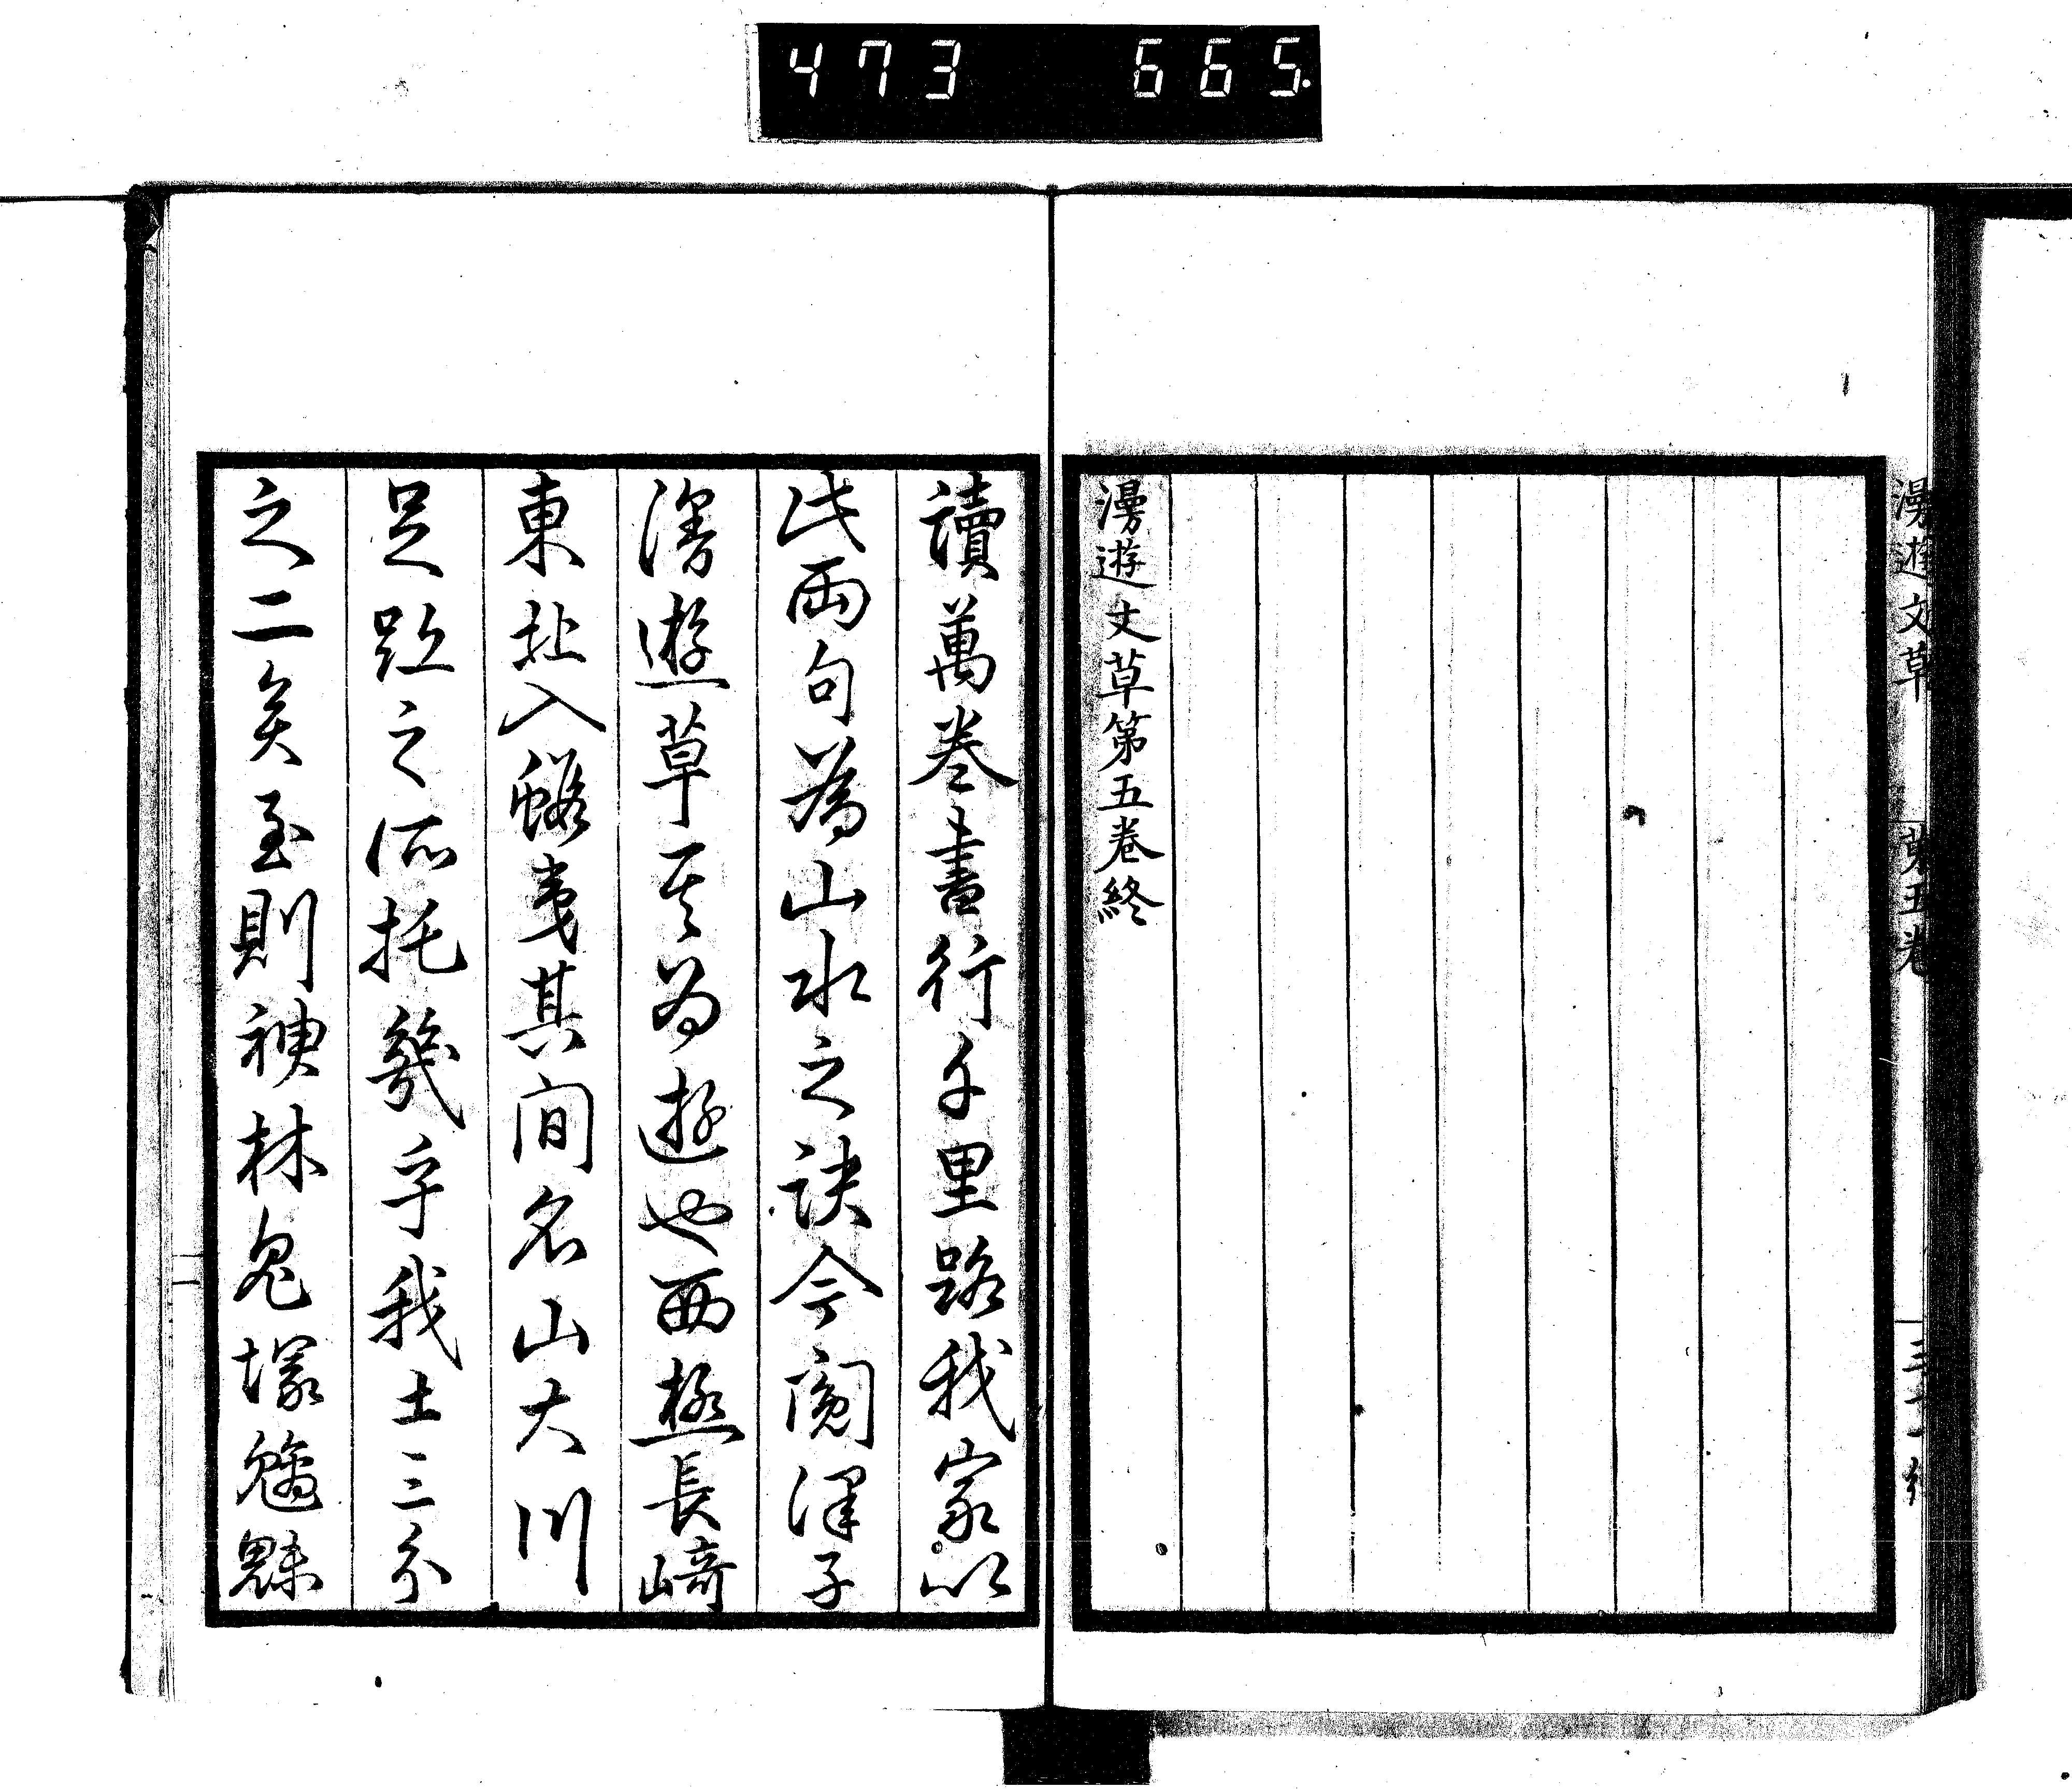 473 665.
漫遊文草
第五卷
漫遊文草第五卷終
讀萬卷書行千里路我家以
此兩句為山水之訣今閲澤子
漫遊草其為遊也西極長崎
東北入蝦夷其間名山大川
足跡之所托幾乎我土三分
之二矣至則神林鬼塚魑魅